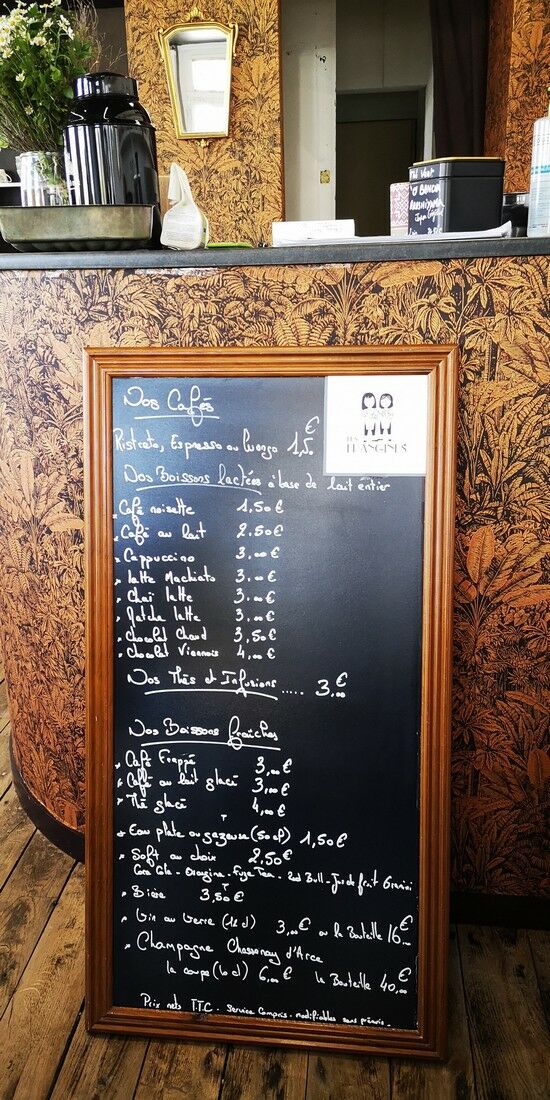 Thé Vert
Nos Cafés
LES
FRANGINES
Ristreto, Espresso ou lungo 1,5. €
Nos Boissons lactées à base de lait entier
Café noisette 1,50 €
Café au lait 2.50 €
Cappuccino 3,00 €
Latte Machiato 3,00 €
Chaï latte 3,00 €
Matcha latte 3,00 €
Chocolat Chaud 3,50 €
Chocolat Viennois 4,00 €
Nos Thés et Infusions ..... 3,00 €
Nos Boissons fraîches
Café Frappé 3,00 €
Café au lait glacé 3,00 €
Thé glacé 4,00 €
Eau plate ou gazeuse (50 cl) 1,50 €
Soft au choix 2,50 €
Coca Cola - Orangina - Fuze Tea - Red Bull - Jus de fruit Granini
Bière 3,50 €
Vin au verre (12 cl) 3,00 € ou la Bouteille 16,00 €
Champagne Chassenay d'Arce
la coupe (10 cl) 6,00 € la Bouteille 40,00 €
Prix nets TTC - Service Compris - modifiables sans préavis.